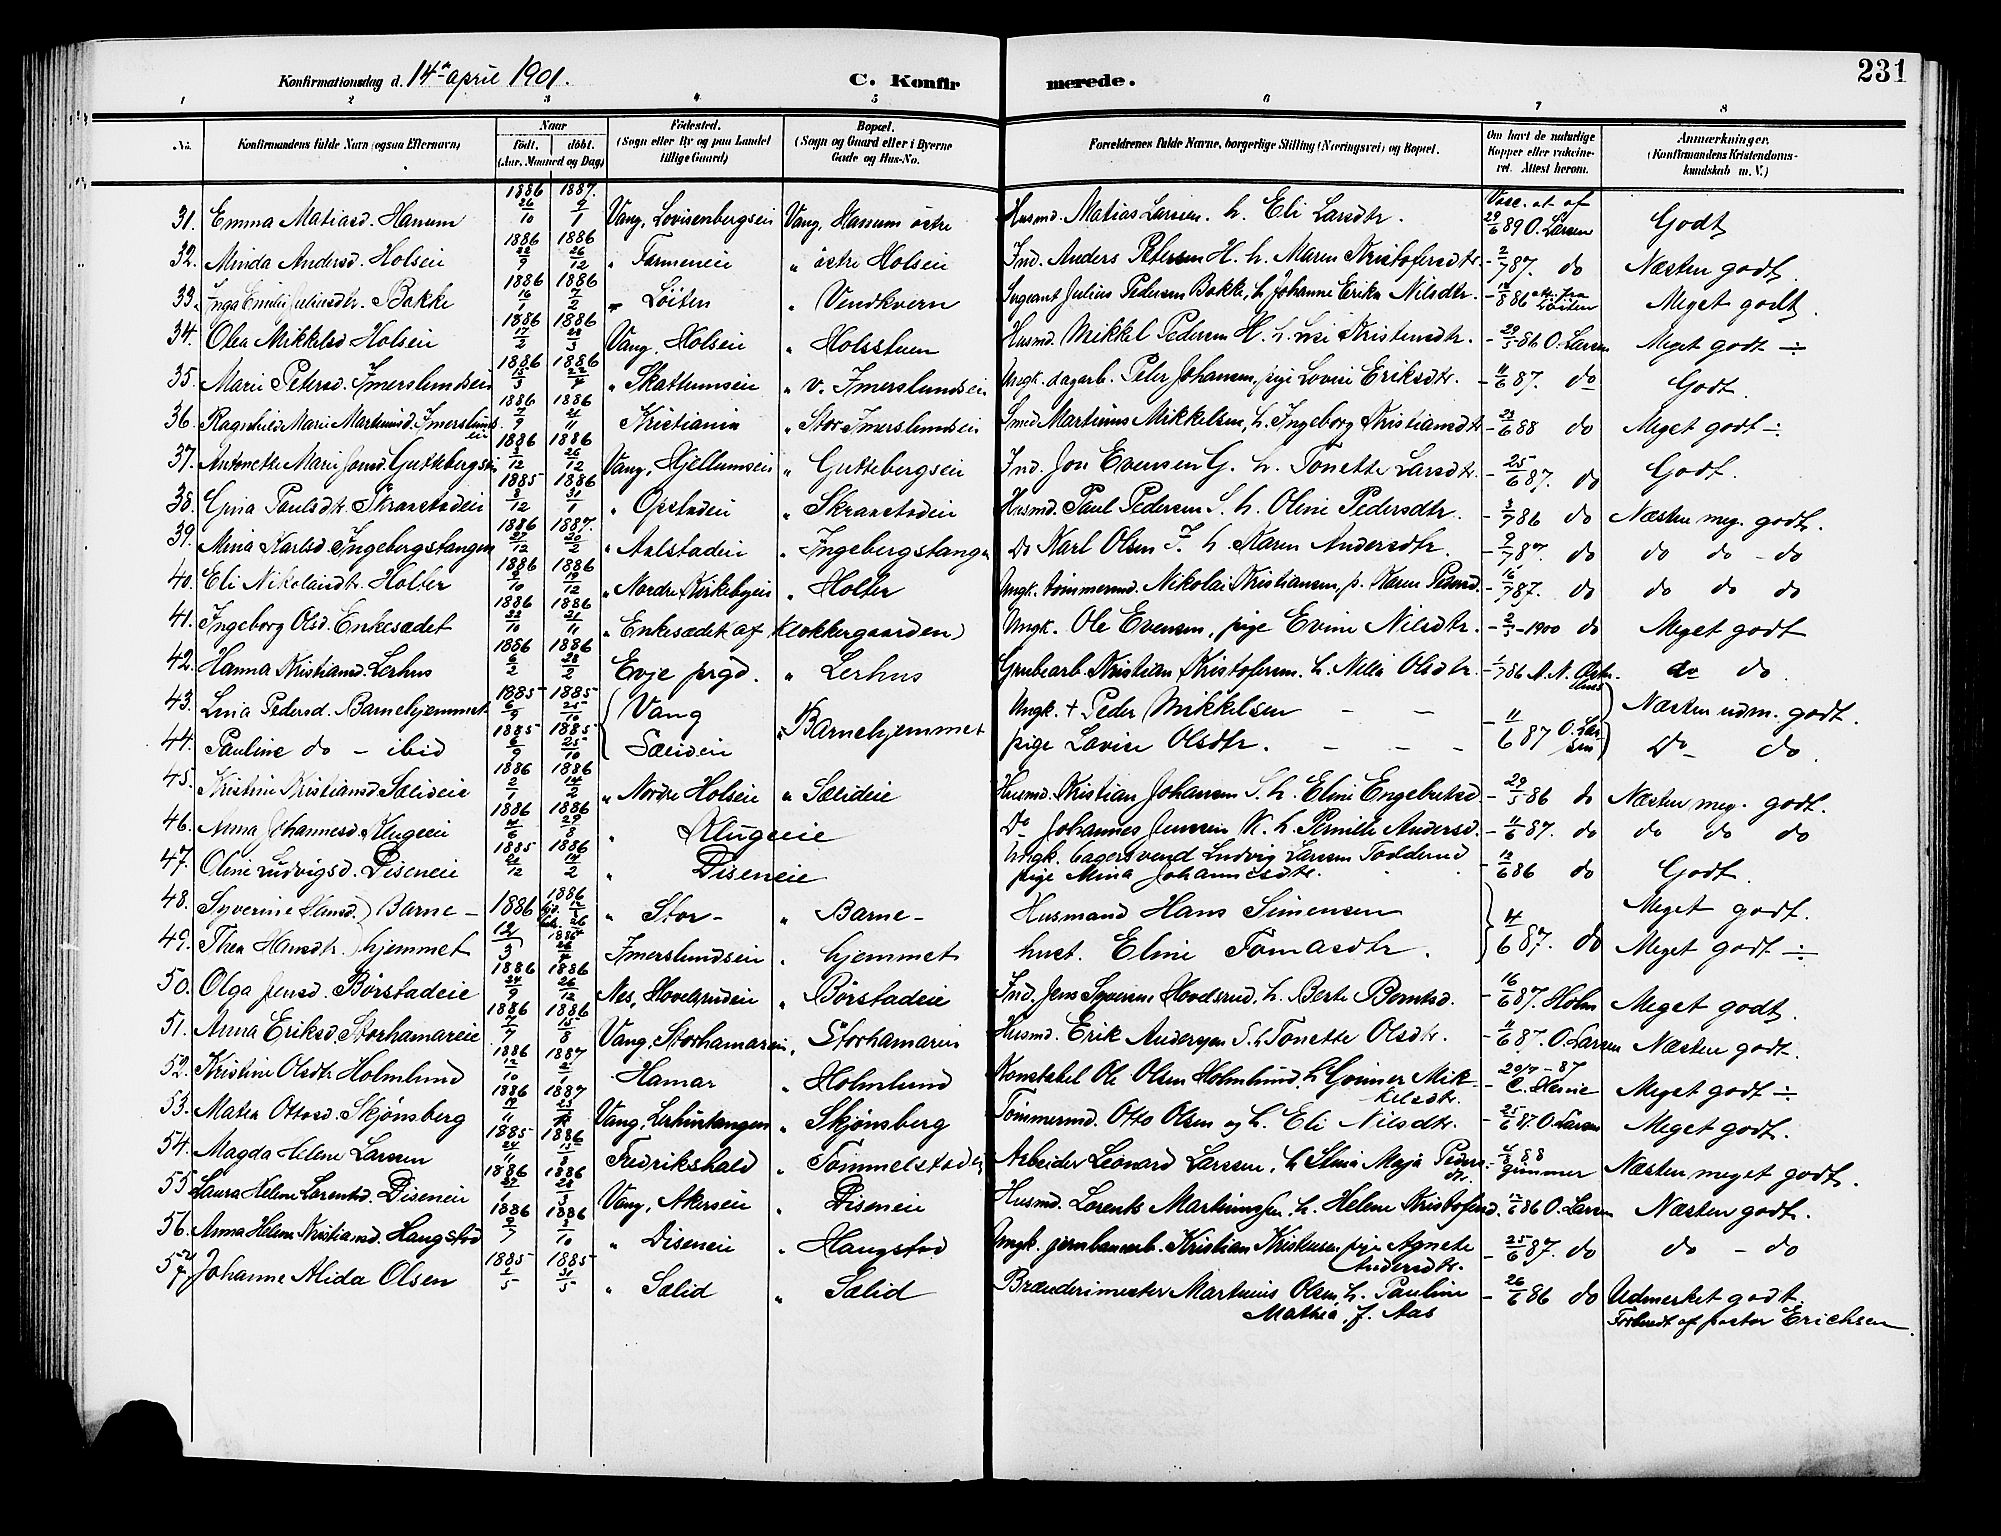 231
Konfirmationsdag d. 14de april 1901. C. Konfirmerede.
1 2 3 4 5 6 7 8
No. Konfirmandens fulde Navn (ogsaa Efternavn) Naar født. døbt. (Aar, Maaned og Dag) Fødested. (Sogn eller By og paa Landet tillige Gaard) Bopæl. (Sogn og Gaard eller i Byerne Gade og Hus-No. Forældrenes fulde Navne, borgerlige Stilling (Næringsvei) og Bopæl. Om havt de naturlige Kopper eller vakcineret. Attest herom. Anmærkninger. (Konfirmandens Kristendomskundskab m. V.)
31. Emma Matiasd. Hanum 1886 26/10 1887. 9/1 Vang, Lovisenbergseie Vang, Hanum østre Husmd. Matias Larsen. h. Eli Larsdtr. Vacc. at. af 29/6 89 O. Larsen Godt
32. Minda Andersd. Holseie 1886 22/9 1886 26/12 " Farmeneie " østre Holseie Ind. Anders Petersen H. h. Maren Kristofersdtr. - 2/7 87. do Næsten godt.
33. Inga Emilie Juliusdtr. Bakke 1886 16/1 1886 7/2 " Löiten " Vendkvern Sergeant Julius Pedersen Bakke, h. Johanne Erika Nilsdtr. - 18/8 86 att. fra Löiten Meget godt.
34. Olea Mikkelsd Holseie 1886 17/2 1886 28/3 Vang, Holseie " Holsstuen Husmd. Mikkel Pedersen H. h. Lisi Kristensdtr. - 29/5 86 O. Larsen Meget godt ÷
35. Marie Petersd. Imerslundseie 1886 15/3 1886 22/4 " Skattumseie " v. Imerslundseie Ungk. dagarb. Peter Johansen, pige Lovise Eriksdtr. - 11/6 87. do Godt.
36. Ragnhild Marie Martinusd. Imerslundseie 1886 7/9 1886 21/11 " Kristiania " Stor Imerslundseie Smed Martinus Mikkelsen, h. Ingeborg Kristiansdtr - 23/6 88 do Meget godt ÷
37. Antonette Marie Jonsd Guttebergseie 1886 3/12 1886 26/12 Vang, Hjellumseie " Guttebergseie Ind. Jon Evensen G. h. Tonette Larsdtr. - 25/6 87. do Godt.
38. Gina Paulsdtr. Skranstadeie 1885 8/12 1886 31/1 " Opstadeie " Skranstadeie Husmd. Paul Pedersen S. h. Oline Pedersdtr. - 3/7 86 do Næsten meg. godt.
39. Mina Karlsd. Ingebergstangen 1886 27/12 1887. 20/2 " Aalstadeie " Ingebergstangen Do Karl Olsen I. h. Karen Andersdtr. - 9/7 87. do do do - do
40. Eli Nikolaidtr. Holter 1886 9/10 1886 19/12 " Nordre Kirkebyeie " Holter Ungk. tömmermd. Nikolai Kristiansen, p. Karen Petersd. - 16/7 87. do do do do
41. Ingeborg Olsd. Enkesædet 1886 22/10 1886 21/11 " Enkesædet af Klokkergaarden) Ungk. Ole Evensen, pige Evine Nilsdtr. - 2/3 - 1900 do Meget godt
42. Hanna Kristiansd. Lerhus 1886 6/2 1886 28/2 Evje prgd. " Lerhus Grubearb Kristian Kristofersen. h. Nilia Olsdtr. - 1/7 86 do do.
43. Lina Pedersd. Barnehjemmet 1885 6/9 1885 25/10 Vang " Barnehjemmet Ungk. + Peder Mikkelsen - - - 11/6 87 O. Larsen Næsten udm. godt.
44. Pauline do - ibid 1885 6/9 1885 25/10 Sælideie pige Lovise Olsdtr. - - - Do do.
45. Kristine Kristiansd Sælideie 1886 2/1 1886 14/2 " Nordre Holseie " Sælideie Husmd. Kristian Johansen S. h. Eline Engebretsd - 29/5 86 do Næsten meg. godt.
46. Anna Johannesd. Klugeeie 1886 4/6 1886 29/8 " Klugeeie Do Johannes Jenssen K. h. Pernille Andersd. - 11/6 87. do do do do
47. Oline Ludvigsd. Diseneie 1885 21/12 1886 14/2 " Diseneie Ungk. bagersvend Ludvig Larssen Todderud pige Mina Johannesdtr. - 12/6 86 do Godt.
48. Syverine Hansd. ) Barne- 1886 1886 " Stor- " Barne- Husmand Hans Simensen Meget godt.
49. Thea Hansdtr. ) hjemmet 12/3 1886 26/4 Imerslundseie " hjemmet hust. Eline Tomasdtr. 11/6 87. do Meget godt ÷
50. Olga Jensd. Börstadeie 1886 24/9 1886 26/12 Nes, Hovelsrudeie " Börstadeie Ind. Jens Syversen Hovelsrud, h. Berte Berntsd. - 16/6 87. Holm Meget godt.
51. Anna Eriksd Storhamareie 1886 7/7 1886 15/8 Vang, Storhamareie " Storhamareie Husmd. Erik Andersen S. h Tonette Olsdtr. - 11/6 87. O. Larsen Næsten godt.
52. Kristine Olsdtr Holmlund 1886 12/10 1887 2/1 Hamar " Holmlund Konstabel Ole Olsen Holmlund, h Gunner Mikkelsdtr. - 20/7 - 87 Meget godt ÷
53. Matea Ottosd. Skjønsberg 1886 19/11 1887 Vang, Lerhustangen " Skjønsberg Tömmermd. Otto Olsen og h. Eli Nilsdtr. - 25/6 87. O. Larsen Meget godt.
54. Magda Helene Larsen 1885 24/11 1886 Fredrikshald " Tommelstadeie Arbeider Leonard Larssen, h Stina Maja Pedersdtr. Næsten meget godt.
55. Laura Helene Lorentsd. Diseneie 1886 27/1 1886 28/3 Vang, Akerseie " Diseneie Husmd. Lorents Martinussen. h. Helene Kristofersd. - 12/6 86 O. Larsen Næsten godt.
56. Anna Helene Kristiansd. Haugstad 1886 9/7 1886 3/10 " Diseneie " Haugstad Ungk. jernbanearb. Kristian Kristensen pige Agnete Andersdtr. - 25/6 87. do do - do
57. Johanne Alida Olsen 1885 2/5 1885 31/5 " Sælid " Sælid Brænderimester Martinus Olsen h. Pauline Mathia f. Aas - 26/6 86 do Udmerket godt. Forberedt af pastor Erichsen.